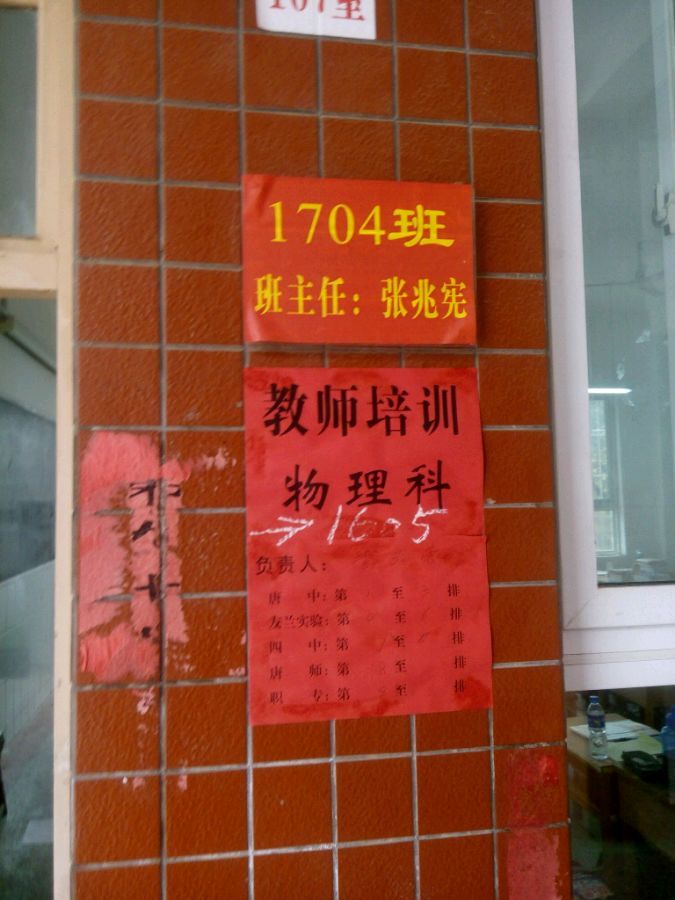 107室
1704班
班主任：张兆宪
教师培训
物理科
→1605
负责人：
唐 中：第 至 排
友兰实验：第 至 排
四 中：第 至 排
唐 师：第 至 排
职 专：第 至 排